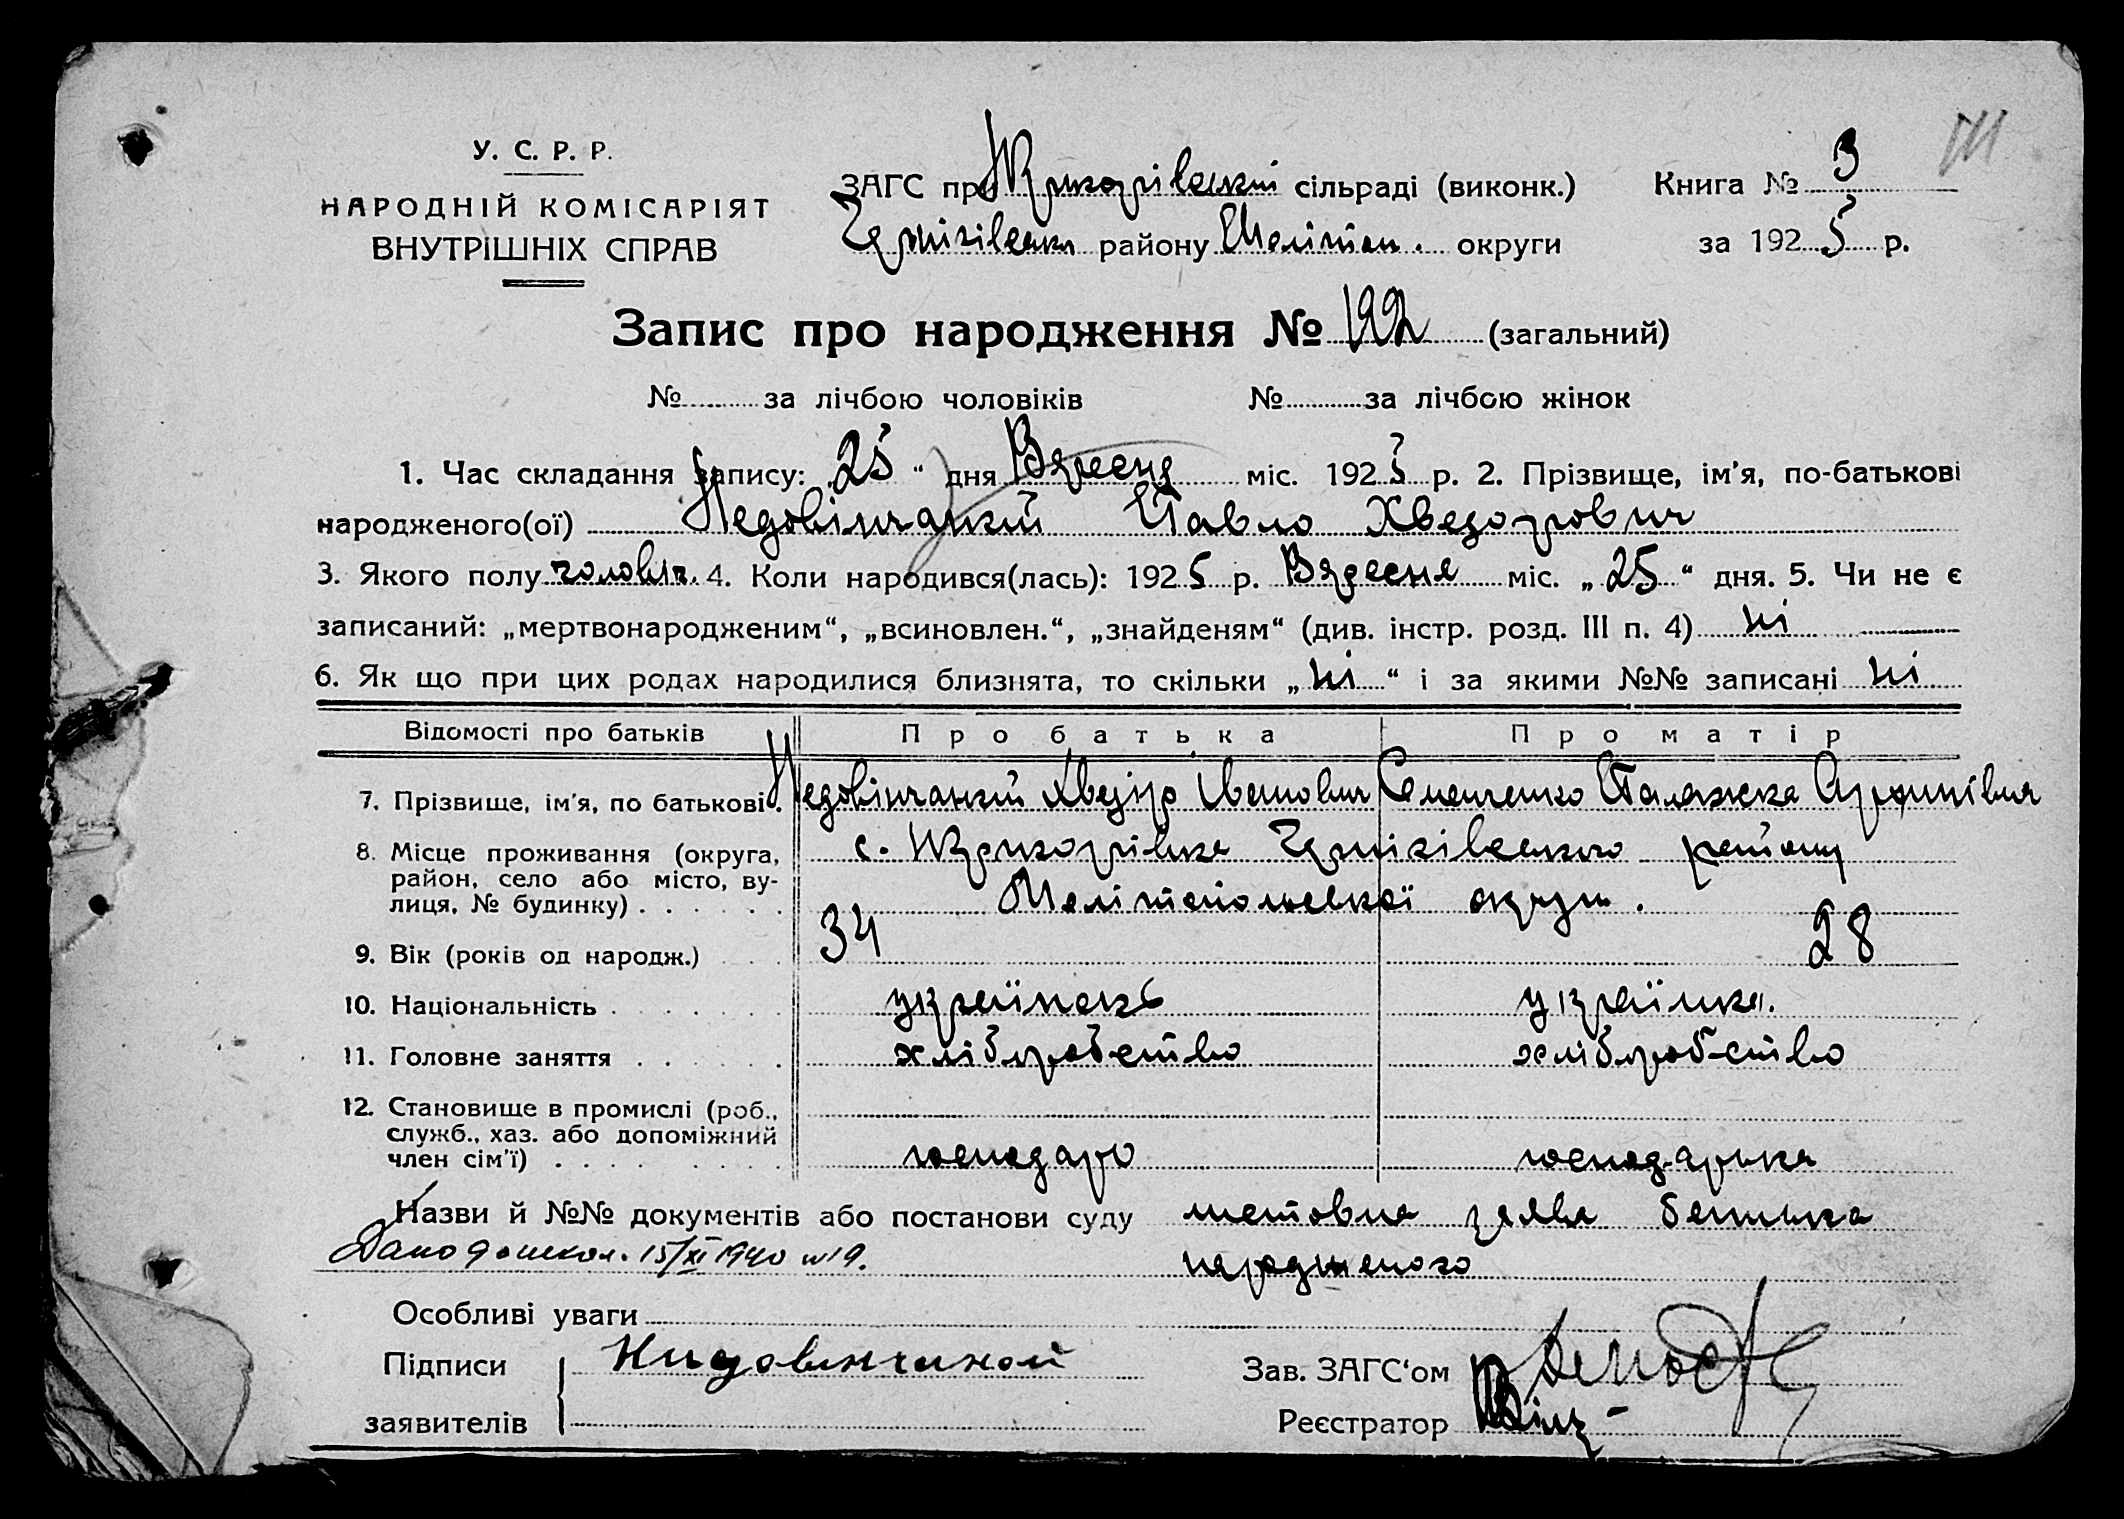 У. С. Р. Р.
НАРОДНІЙ КОМІСАРІЯТ
ВНУТРІШНІХ СПРАВ
ЗАГС при сільраді (виконк.)
Чернігівськ району Мелітоп. округи
Книга № 3
за 1925 р.
Запис про народження № 122 (загальний)
№ за лічбою чоловіків № за лічбою жінок
1. Час складання запису: 25 “ дня Вересня міс. 1925 р. 2. Прізвище, ім'я, по-батькові
народженого(ої) Недовінчаний Павло Хведорович
3. Якого полу чоловіч. 4. Коли народився(лась): 1925 р. Вересня міс. „25“ дня. 5. Чи не є
записаний: „мертвонародженим“, „всиновлен.“, „знайденям“ (див. інстр. розд. III п. 4) ні
6. Як що при цих родах народилися близнята, то скільки „ні“ і за якими №№ записані ні
Відомості про батьків Про батька Про матір
7. Прізвище, ім'я, по батькові. Недовінчаний Хведір Іванович Семененко Палажка Архипівна
8. Місце проживання (округа, с. Чернігівського району
район, село або місто, ву-
лиця, № будинку) Мелітопольської округи.
9. Вік (років од народж.) 34 28
10. Національність українець українка.
11. Головне заняття хліборобство хліборобство
12. Становище в промислі (роб.,
служб., хаз. або допоміжний
член сім'ї) господарь господарька
Назви й №№ документів або постанови суду заява батька
15/XI 1940 №19. народженого
Особливі уваги
Підписи
заявителів
Зав. ЗАГС‘ом
Реєстратор